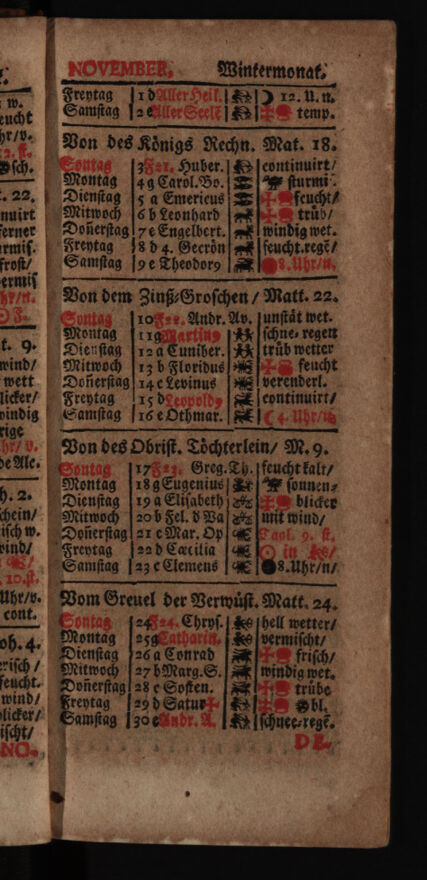 w.
eucht
hr/v.
2. st.
sch.
. 22.
nuirt
ferner
rmis-
frost/
ermis
hr/n.
t. 9.
wind/
wett
licker/
windig
rige
hr/ v.
de Ale.
h. 2.
schein/
isch w.
wind/
10.st.
Uhr/v.
cont.
oh. 4.
erisch /
feucht.
wind/
blicker/
ischt/
NO.
NOVEMBER. Wintermonat.
Freytag 1 d Aller Heil. 12. U. n.
Samstag 2 e Aller Seelē temp.
Von des Königs Rechn. Mat. 18.
Sontag 3 F21. Huber. continuirt/
Montag 4 g Carol. Bo. sturmi
Dienstag 5 a Emericus feucht/
Mitwoch 6 b Leonhard trüb/
Doñerstag 7 c Engelbert. windig wet.
Freytag 8 d 4. Gecrön feucht. regē/
Samstag 9 e Theodor9 8. Uhr/n.
Von dem Zinß-Groschen / Matt. 22.
Sontag 10 F22. Andr. Av. unstät wet.
Montag 11 g Martin9 schne- regen
Dienstag 12 a Cuniber. trüb wetter
Mitwoch 13 b Floridus feucht
Doñerstag 14 c Levinus verenderl.
Freytag 15 d Leopold9 continuirt/
Samstag 16 e Othmar. 4. Uhr/n
Von des Obrist. Töchterlein/ M. 9.
Sontag 17 F23. Greg. Th. feucht kalt/
Montag 18 g Eugenius sonnen-
Dienstag 19 a Elisabeth blicker
Mitwoch 20 b Fel. d Va mit wind/
Doñerstag 21 c Mar. Op Tagl. 9. st.
Freytag 22 d Cæcilia in
Samstag 23 e Clemens 8. Uhr/n/
Vom Greuel der Verwüst. Matt. 24.
Sontag 24 F24. Chrys. hell wetter/
Montag 25 g Catharin. vermischt/
Dienstag 26 a Conrad frisch/
Mitwoch 27 b Marg. S. windig wet.
Doñerstag 28 c Sosten. trübe
Freytag 29 d Satur bl.
Samstag 30 e Andr. A. schnee-regē.
DE-